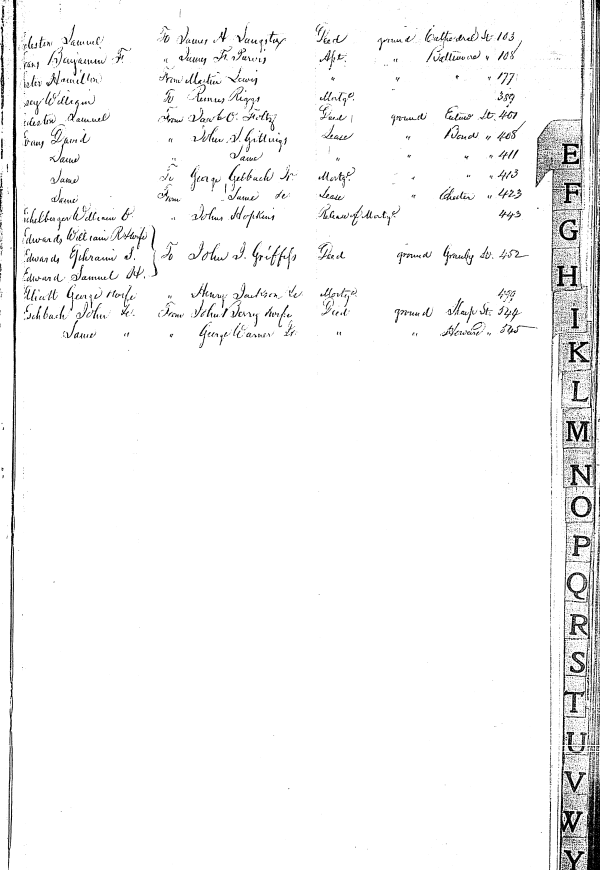 Samuel To James A. Sangston Deed ground Cathedral St 103
Benjamin F. " James F. Purvis Apt. " Baltimore " 108
Hamilton From Martin Lewis " " " " 177
William To Remus Riggs Mortg. 389
Samuel From Jacob O. Foltz Deed ground Eutaw St. 401
Evans David " John S. Gittings Lease " Bond " 408
Same " Same " " " " 411
Same To George Gebbach Mortg. " " " 413
Same From Same Lease " Chester " 423
William " Johns Hopkins Release of Mortg. 443
Edwards William R & wife
Edwards Ephraim S. To John J. Griffiss Deed ground Granby St. 452
Edward Samuel H.
Elliott George & wife " Henry Jackson Mortg.
John From John Berry & wife Deed ground Sharp St. 544
Same " " George Warner " " Howard " 545
E
F
G
H
I
K
L
M
N
O
P
Q
R
S
T
U
V
W
Y